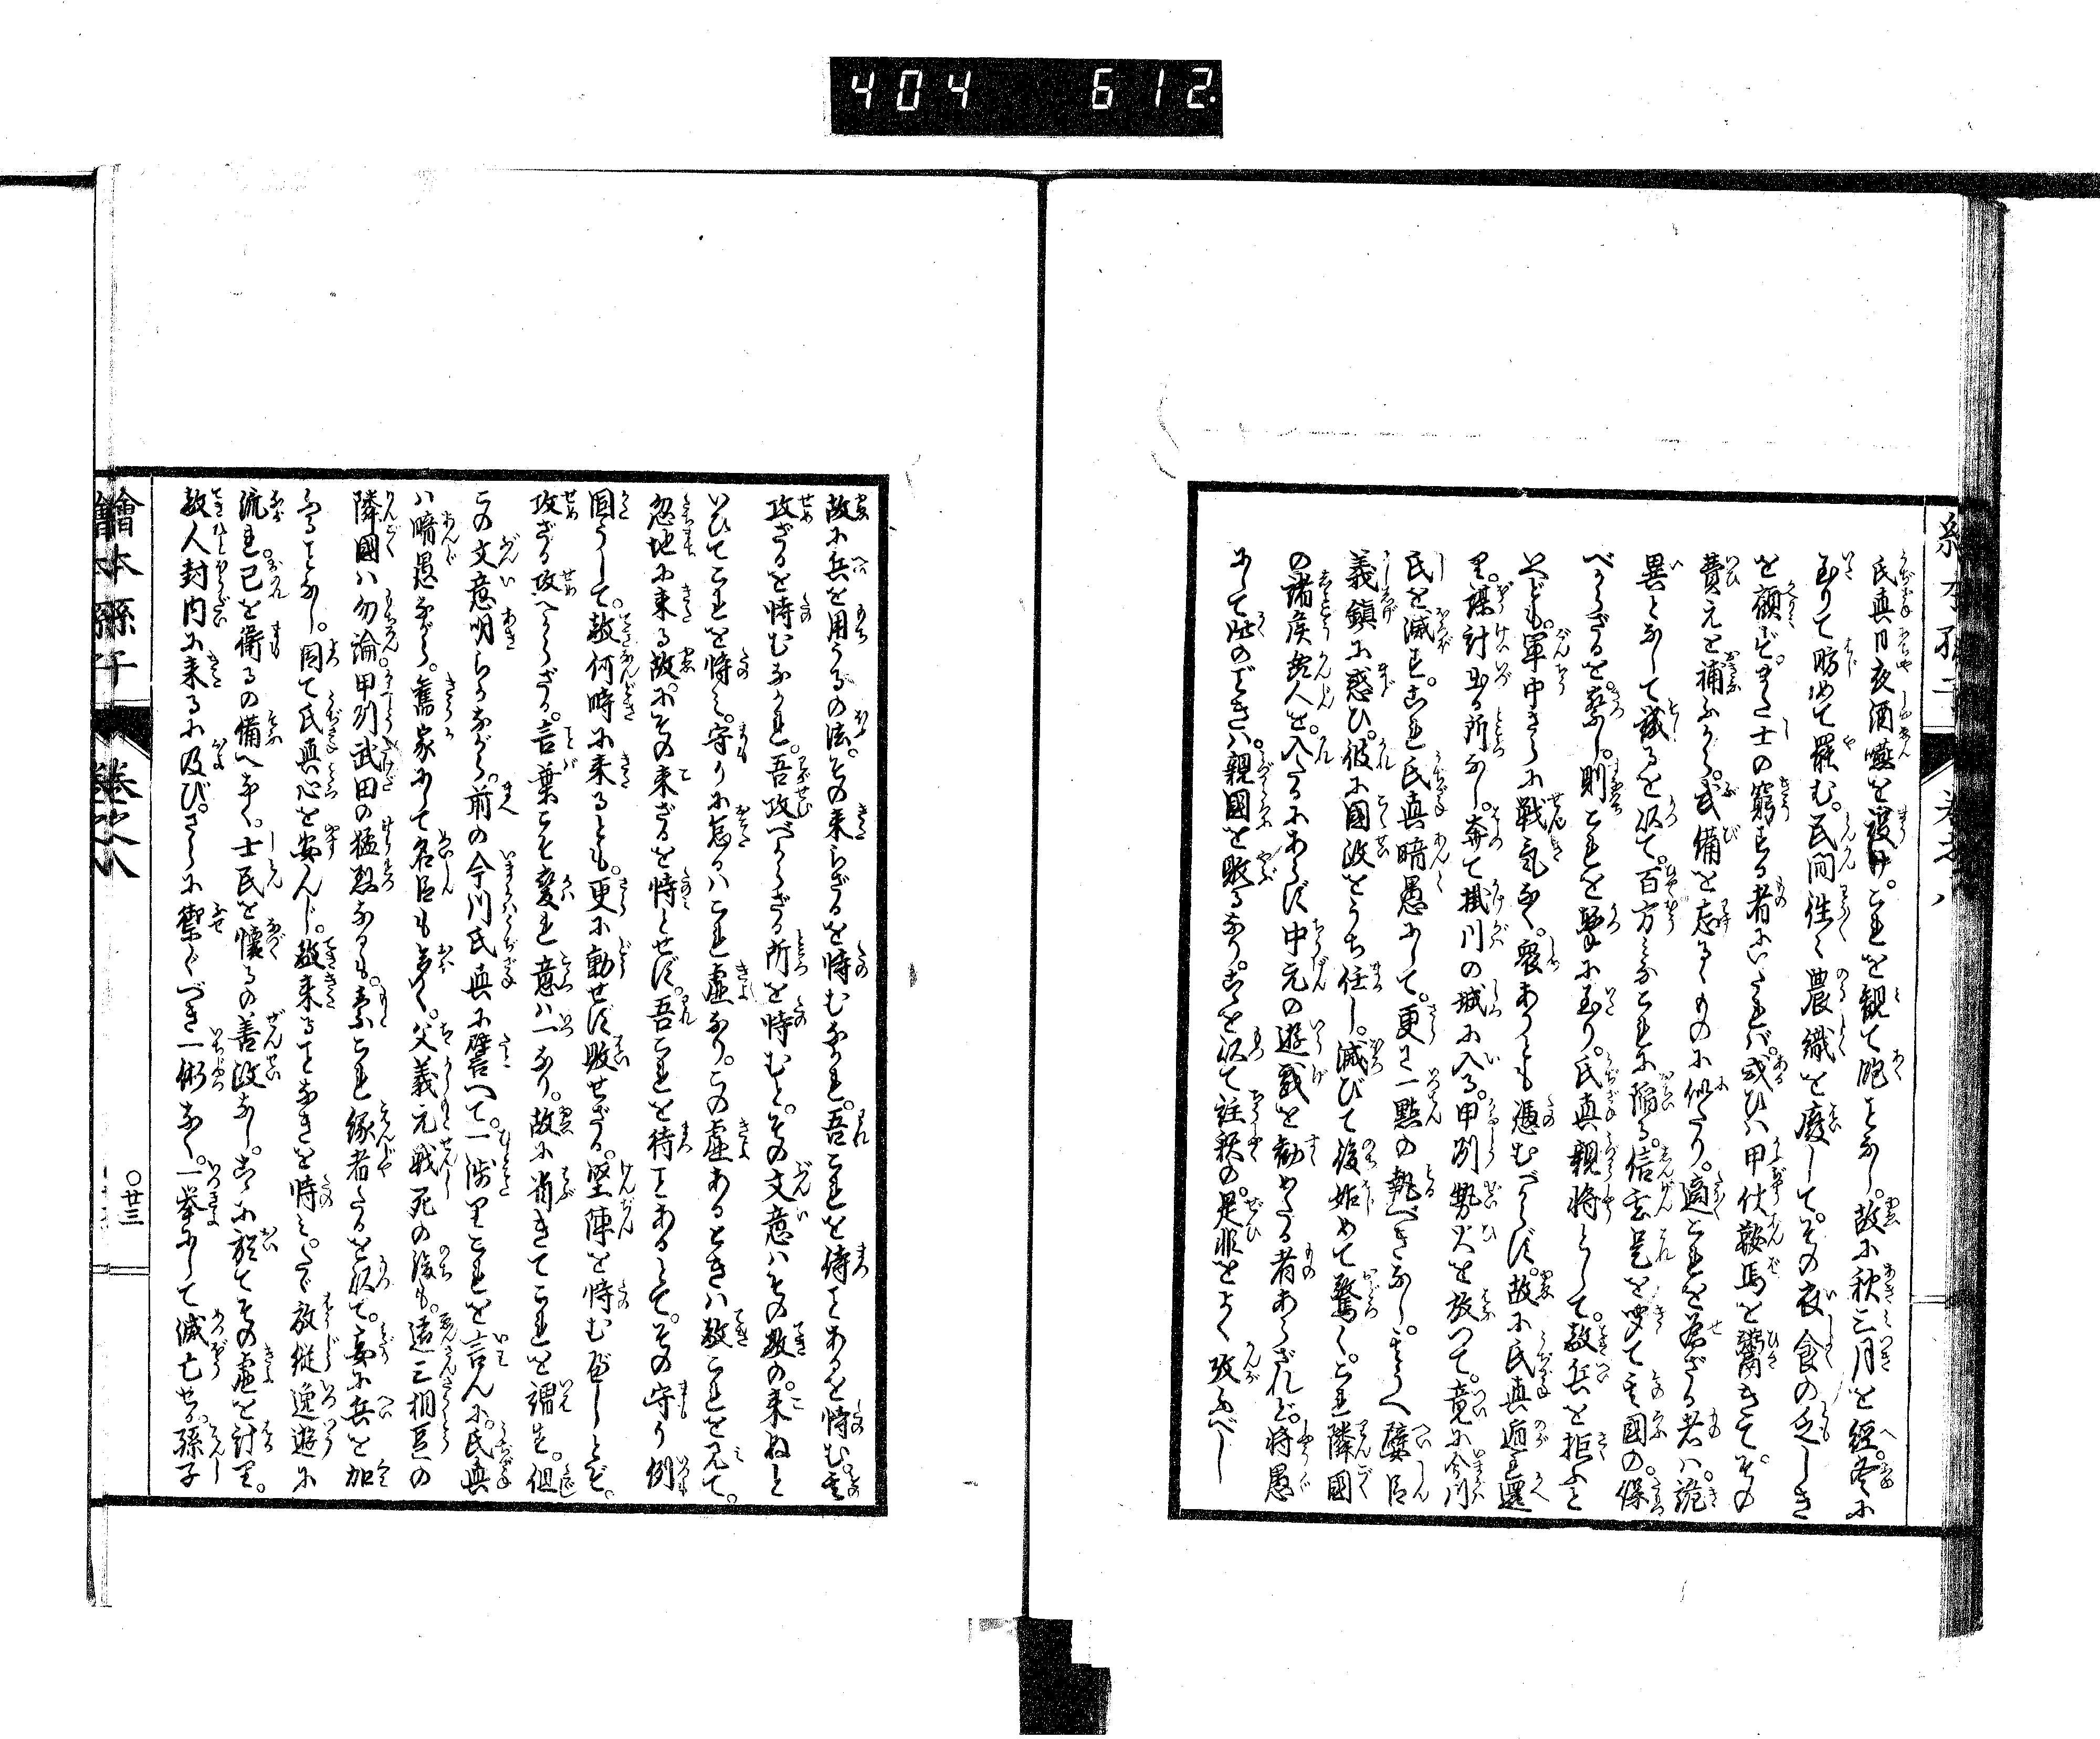 404 612
氏真日夜酒嚥を設け。これを観て飽ことなし。故に秋三月を経。冬に
至りて昉めて罷む。民間往々農織を廃して。その衣食の乏しき
を顧ず。また士の窮する者にいたれバ。或ひハ甲仗鞍馬を鬻ぎて。その
費えを補ふから。武備を忘るゝものに似たり。適これを為ざる者ハ。詭
異となして譏るを以て。百方みなこれに陥る。信玄是を聞て其國の。保
べからざるを察し。則これを撃に至り。氏真親将として。敵兵を拒ふと
いへども。軍中さらに戦気なく。衆ありとも憑むべからず。故に氏真遁れ還
り。謀計出る所なし。棄て掛川の城に入る。甲州勢火を放つて。竟に今川
氏を滅す。これ氏真暗愚にして。更に一點の執べきなし。其うへ嬖臣
義鎮に惑ひ。彼に國政をうち任し。滅びて後始めて驚く。これ隣國
の諸侯間人を。入たるにあらず中元の遊戯を勧めたる者あらざれど。将愚
にして此のごときハ。親國を敗るなり。これを以て註釈の。是非をよく攷ふべし
故に兵を用うるの法。その来らざるを恃むなかれ。吾これを待ことあるを恃む。其
攻ざるを恃むなかれ。吾攻べからざる所を恃むと。その文意ハその敵の。来ぬと
いひてこれを恃み。守りに怠るハこれ虚なり。この虚あるときハ敵これを見て。
忽地に来る故。にその来ざるを恃とせず。吾これを待ことあるとて。その守り例
固うして。敵何時に来るとも。更に動せず敗せざる。堅陣を恃むべしとぞ。
攻ざる攻べからざる。言葉こそ変れ意ハ一なり。故に省きてこれを謂ず。但
この文意明らかながら。前の今川氏真に譬へて。一渉りこれを言んに。氏真
ハ暗愚ながら。舊家にして名臣も多く。父義元戦死の後も。遠三相豆の
隣國ハ勿論。甲州武田の猛烈なるも。素これ縁者たるを以て。妄に兵を加
ふることなし。因て氏真心を安んじ。敵来ることなきを恃み。たゞ放縦逸遊に
流れ。己を衛るの備へなく。士民を懐るの善政なし。茲に於てその虚を討れ。
敵人封内に来るに及び。さらに禦ぐべき一術なく。一挙にして滅亡せり。孫子
繪本孫子
巻之八
〇廿三